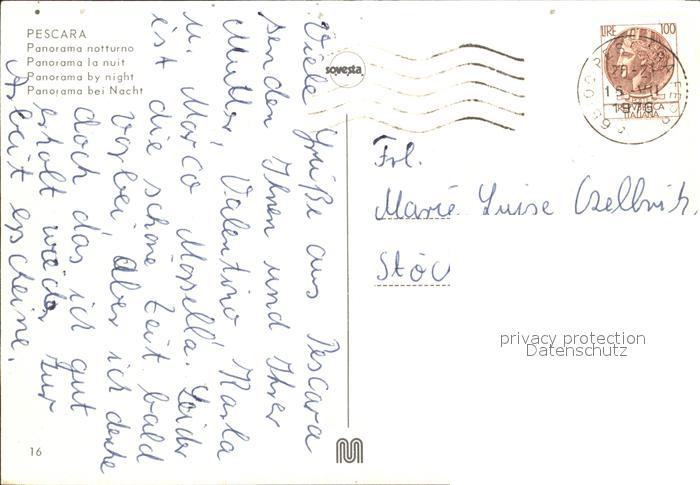 PESCARA
Panorama notturno
Panorama la nuit
Panorama by night
Panorama bei Nacht
sovesta
LIRE 100
20-21
15-VII
1976
REPVBBLICA
ITALIANA
Viele Grüße aus Pescara
senden Ihnen und Ihrer
Mutter, Valentino Karla
u. Marco Mosella. Leider
ist die schöne Zeit bald
vorbei, aber ich denke
doch das ich gut
erholt wieder zur
Arbeit erscheine.
Frl.
Marie Luise
Stöc
privacy protection
Datenschutz
16